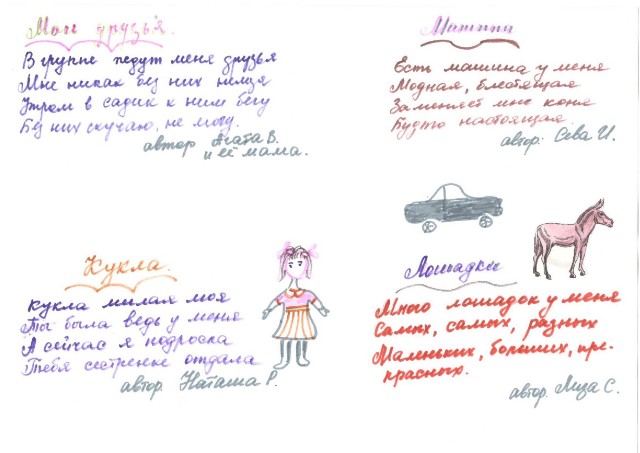 Мои друзья.
В группе ждут меня друзья
Мне никак без них нельзя
Утром в садик к ним бегу
Без них скучаю, не могу.
автор Агата В.
и её мама.
Машины
Есть машина у меня
Модная, блестящая
Заменяет мне коня
Будто настоящая.
автор: Сева И.
Кукла.
Кукла милая моя
Ты была ведь у меня
А сейчас я подросла
Тебя сестренке отдала
автор Наташа Р.
Лошадки
Много лошадок у меня
Самых, самых, разных
Маленьких, больших, пре-
красных.
автор. Лиза С.